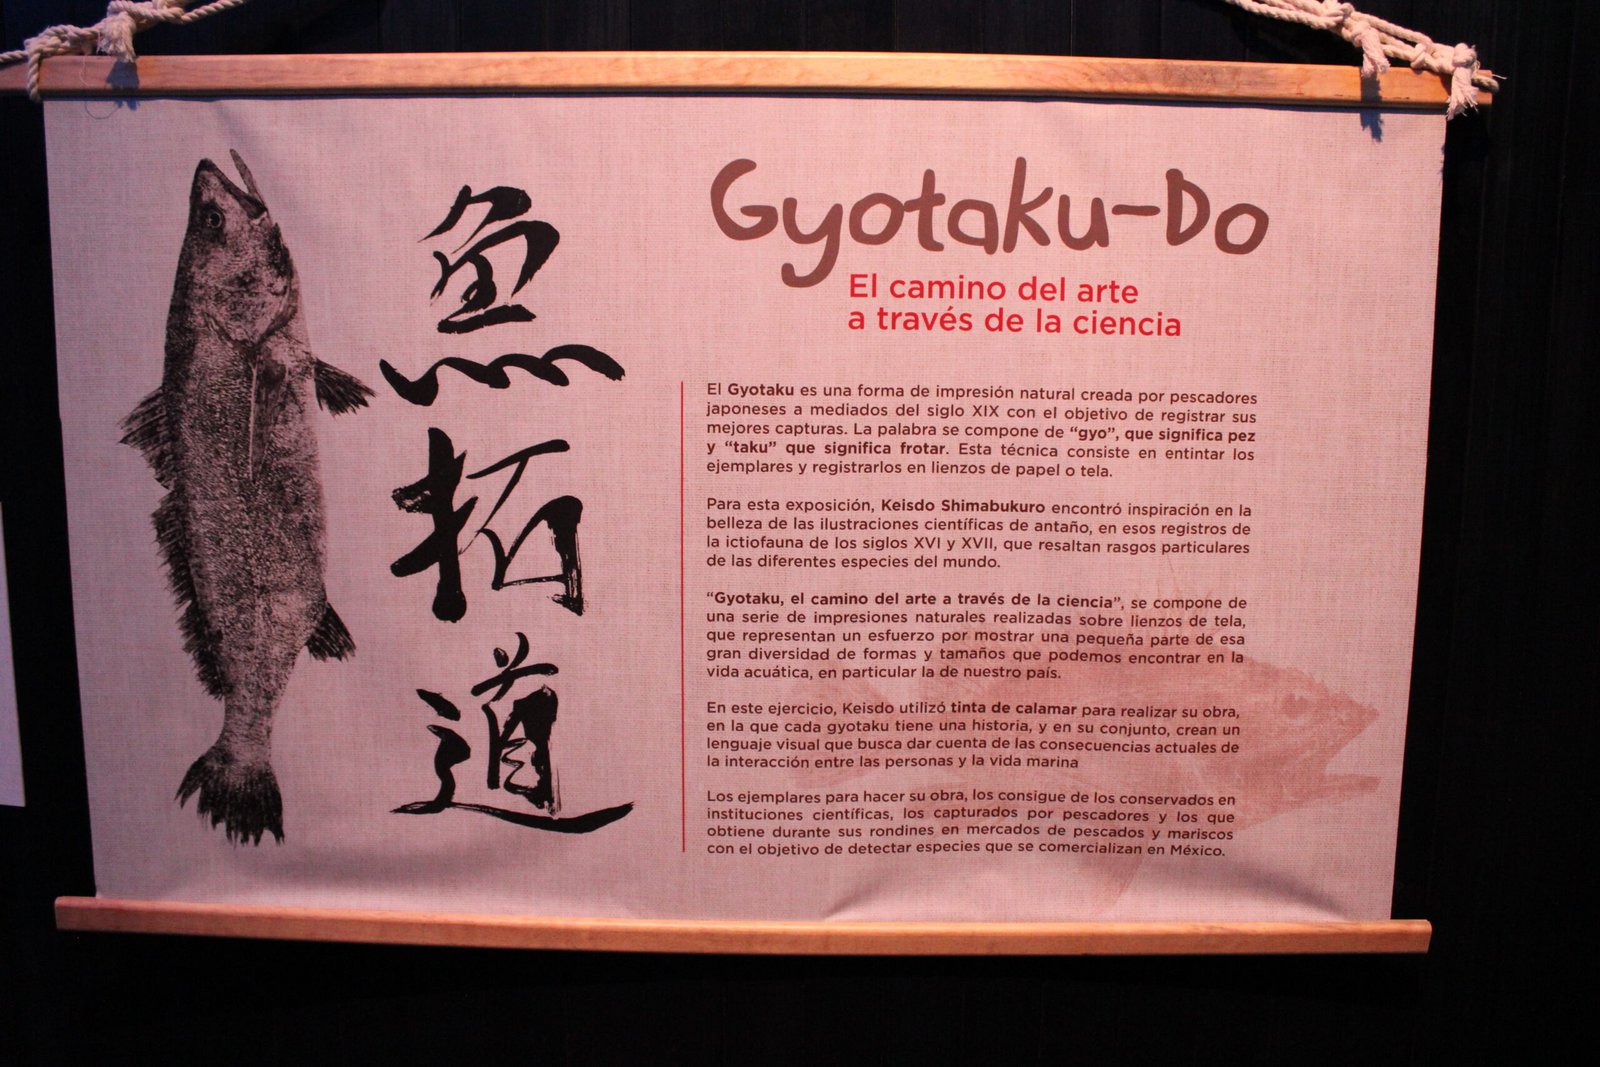 魚
拓
道
Gyotaku-Do
El camino del arte
a través de la ciencia
El Gyotaku es una forma de impresión natural creada por pescadores
japoneses a mediados del siglo XIX con el objetivo de registrar sus
mejores capturas. La palabra se compone de “gyo”, que significa pez
y “taku” que significa frotar. Esta técnica consiste en entintar los
ejemplares y registrarlos en lienzos de papel o tela.
Para esta exposición, Keisdo Shimabukuro encontró inspiración en la
belleza de las ilustraciones científicas de antaño, en esos registros de
la ictiofauna de los siglos XVI y XVII, que resaltan rasgos particulares
de las diferentes especies del mundo.
“Gyotaku, el camino del arte a través de la ciencia”, se compone de
una serie de impresiones naturales realizadas sobre lienzos de tela,
que representan un esfuerzo por mostrar una pequeña parte de esa
gran diversidad de formas y tamaños que podemos encontrar en la
vida acuática, en particular la de nuestro país.
En este ejercicio, Keisdo utilizó tinta de calamar para realizar su obra,
en la que cada gyotaku tiene una historia, y en su conjunto, crean un
lenguaje visual que busca dar cuenta de las consecuencias actuales de
la interacción entre las personas y la vida marina
Los ejemplares para hacer su obra, los consigue de los conservados en
instituciones científicas, los capturados por pescadores y los que
obtiene durante sus rondines en mercados de pescados y mariscos
con el objetivo de detectar especies que se comercializan en México.